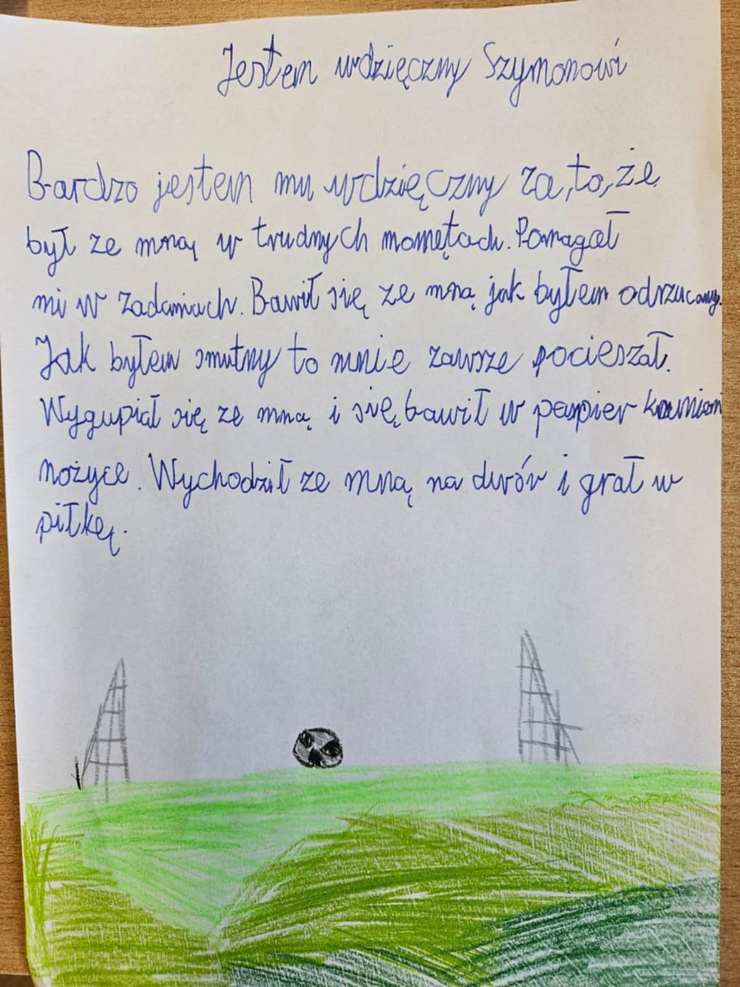 Jestem wdzięczny Szymonowi
Bardzo jestem mu wdzięczny za, to, że
był ze mną w trudnych momętach. Pomagał
mi w zadaniach. Bawił się ze mną jak byłem odrzucany.
Jak byłem smutny to mnie zawsze pocieszał.
Wygupiał się ze mną i się bawił w papier kamień
nożyce. Wychodził ze mną na dwór i grał w
piłkę.